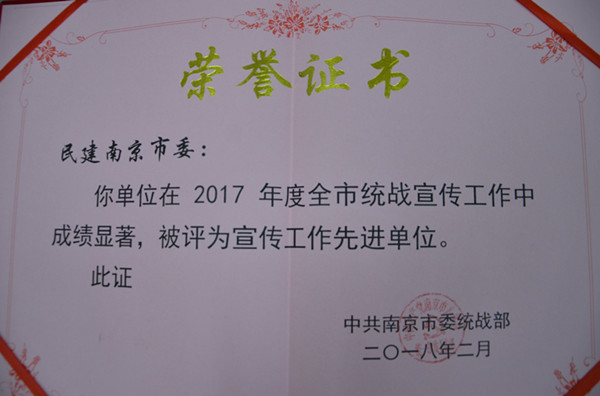 荣誉证书
民建南京市委：
你单位在 2017 年度全市统战宣传工作中
成绩显著，被评为宣传工作先进单位。
此证
中共南京市委统战部
二〇一八年二月